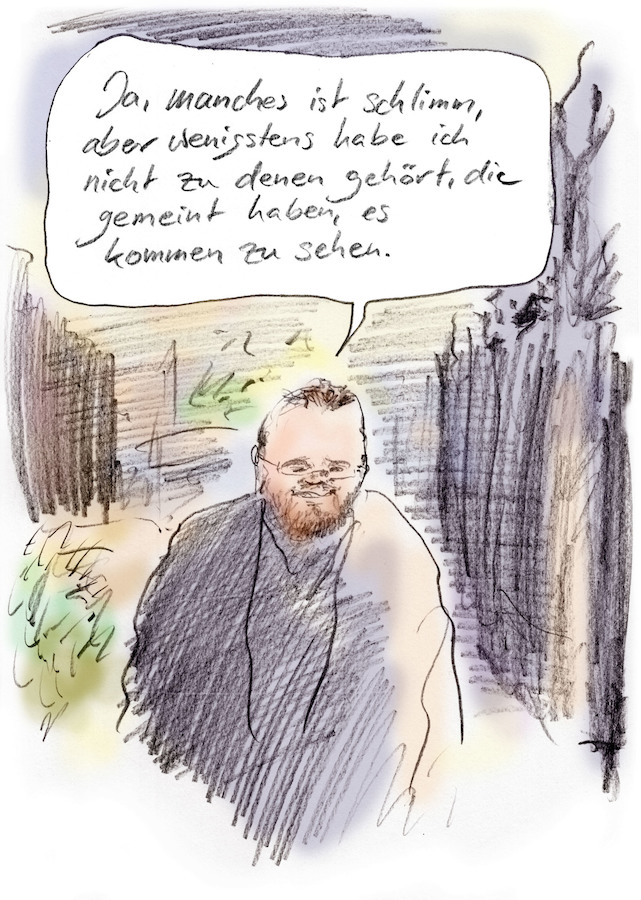 Ja, manches ist schlimm,
aber wenigstens habe ich
nicht zu denen gehört, die
gemeint haben, es
kommen zu sehen.